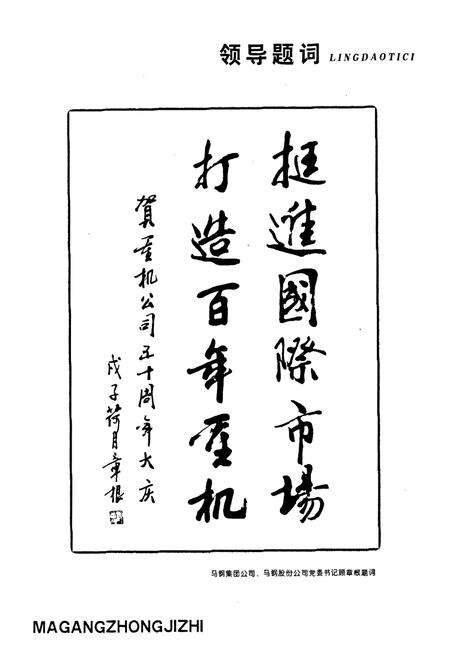 领导题词 LINGDAOTICI
挺進國際市場
打造百年重机
賀重机公司五十周年大庆
戊子荷月章根
马钢集团公司、马钢股份公司党委书记顾章根题词
MAGANGZHONGJIZHI